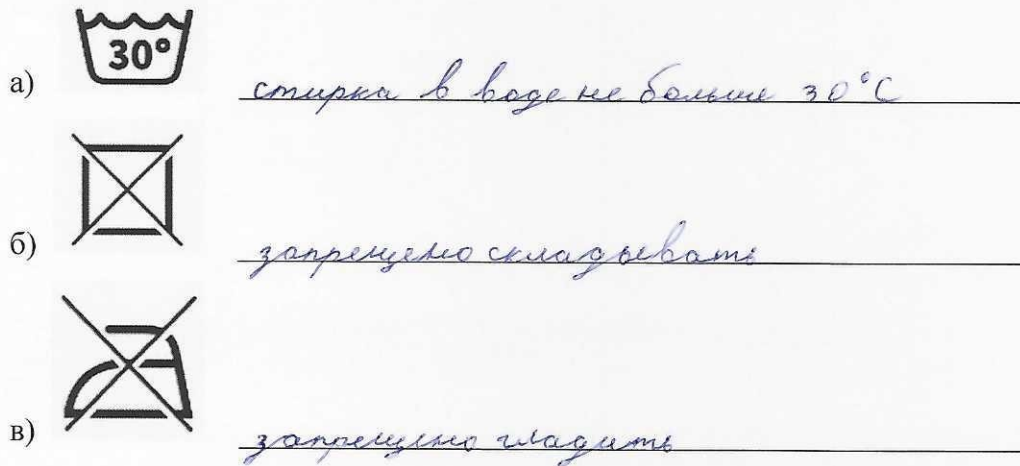 30°
а) стирка в воде не больше 30°С
б) запрещено складывать
в) запрещено гладить